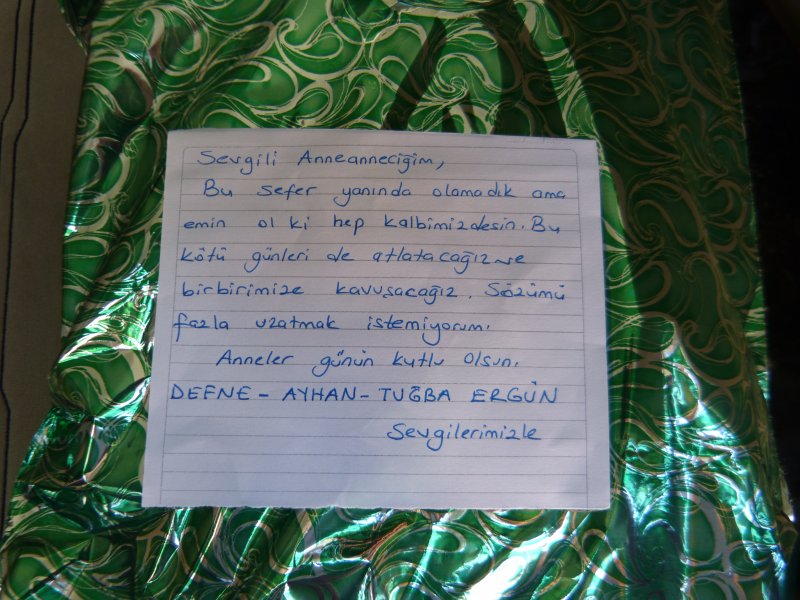 Sevgili Anneanneciğim,
Bu sefer yanında olamadık ama
emin ol ki hep kalbimizdesin. Bu
kötü günleri de atlatacağız ve
birbirimize kavuşacağız. Sözümü
fazla uzatmak istemiyorum.
Anneler günün kutlu olsun.
DEFNE - AYHAN - TUĞBA ERGÜN
Sevgilerimizle